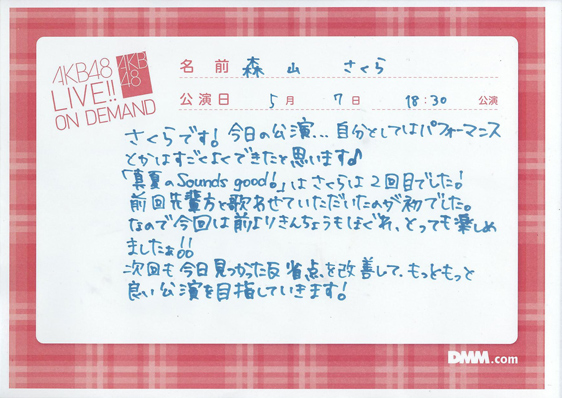 AKB48
LIVE!!
ON DEMAND
AKB
48
名前 森山 さくら
公演日 5月 7日 18:30 公演
さくらです!今日の公演...自分としてはパフォーマンス
とかはすごくよくできたと思います♪
「真夏のSounds good!」はさくらは2回目でした!
前回先輩方と歌わせていただいたのが初でした。
なので今回は前よりきんちょうもほぐれ、とっても楽しめ
ましたぁ!!
次回も今日見つかった反省点を改善して、もっともっと
良い公演を目指していきます!
DMM.com